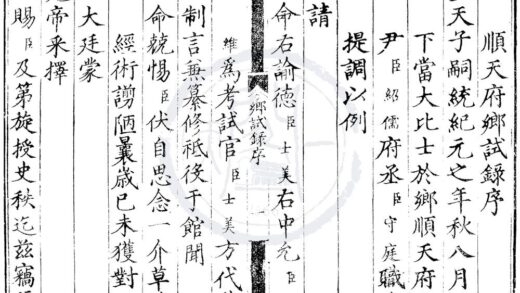 順天府鄉試錄序
天子嗣統紀元之年秋八月
下當大比士於鄉順天府
尹臣紹儒府丞臣守庭職
提調以例
請
命右諭德臣士美右中允臣
鄉試錄序
維爲考試官臣士美方代
制言兼纂修祗役于館聞
命兢惕臣伏自思念一介草
經術謭陋曩歲已未獲對
大廷蒙
帝采擇
賜臣及第旋授史秩迄茲竊